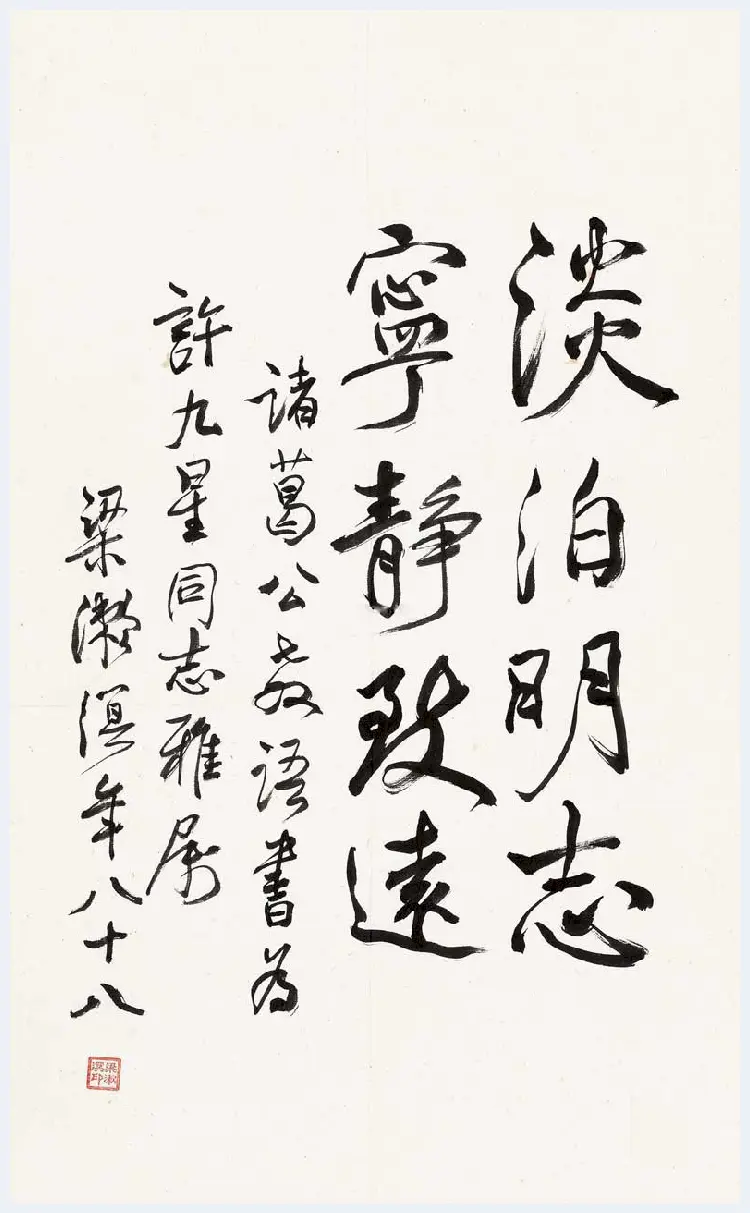 淡泊明志
寧靜致遠
諸葛公教語書為
許九星同志雅屬
梁漱溟年八十八
梁漱溟印